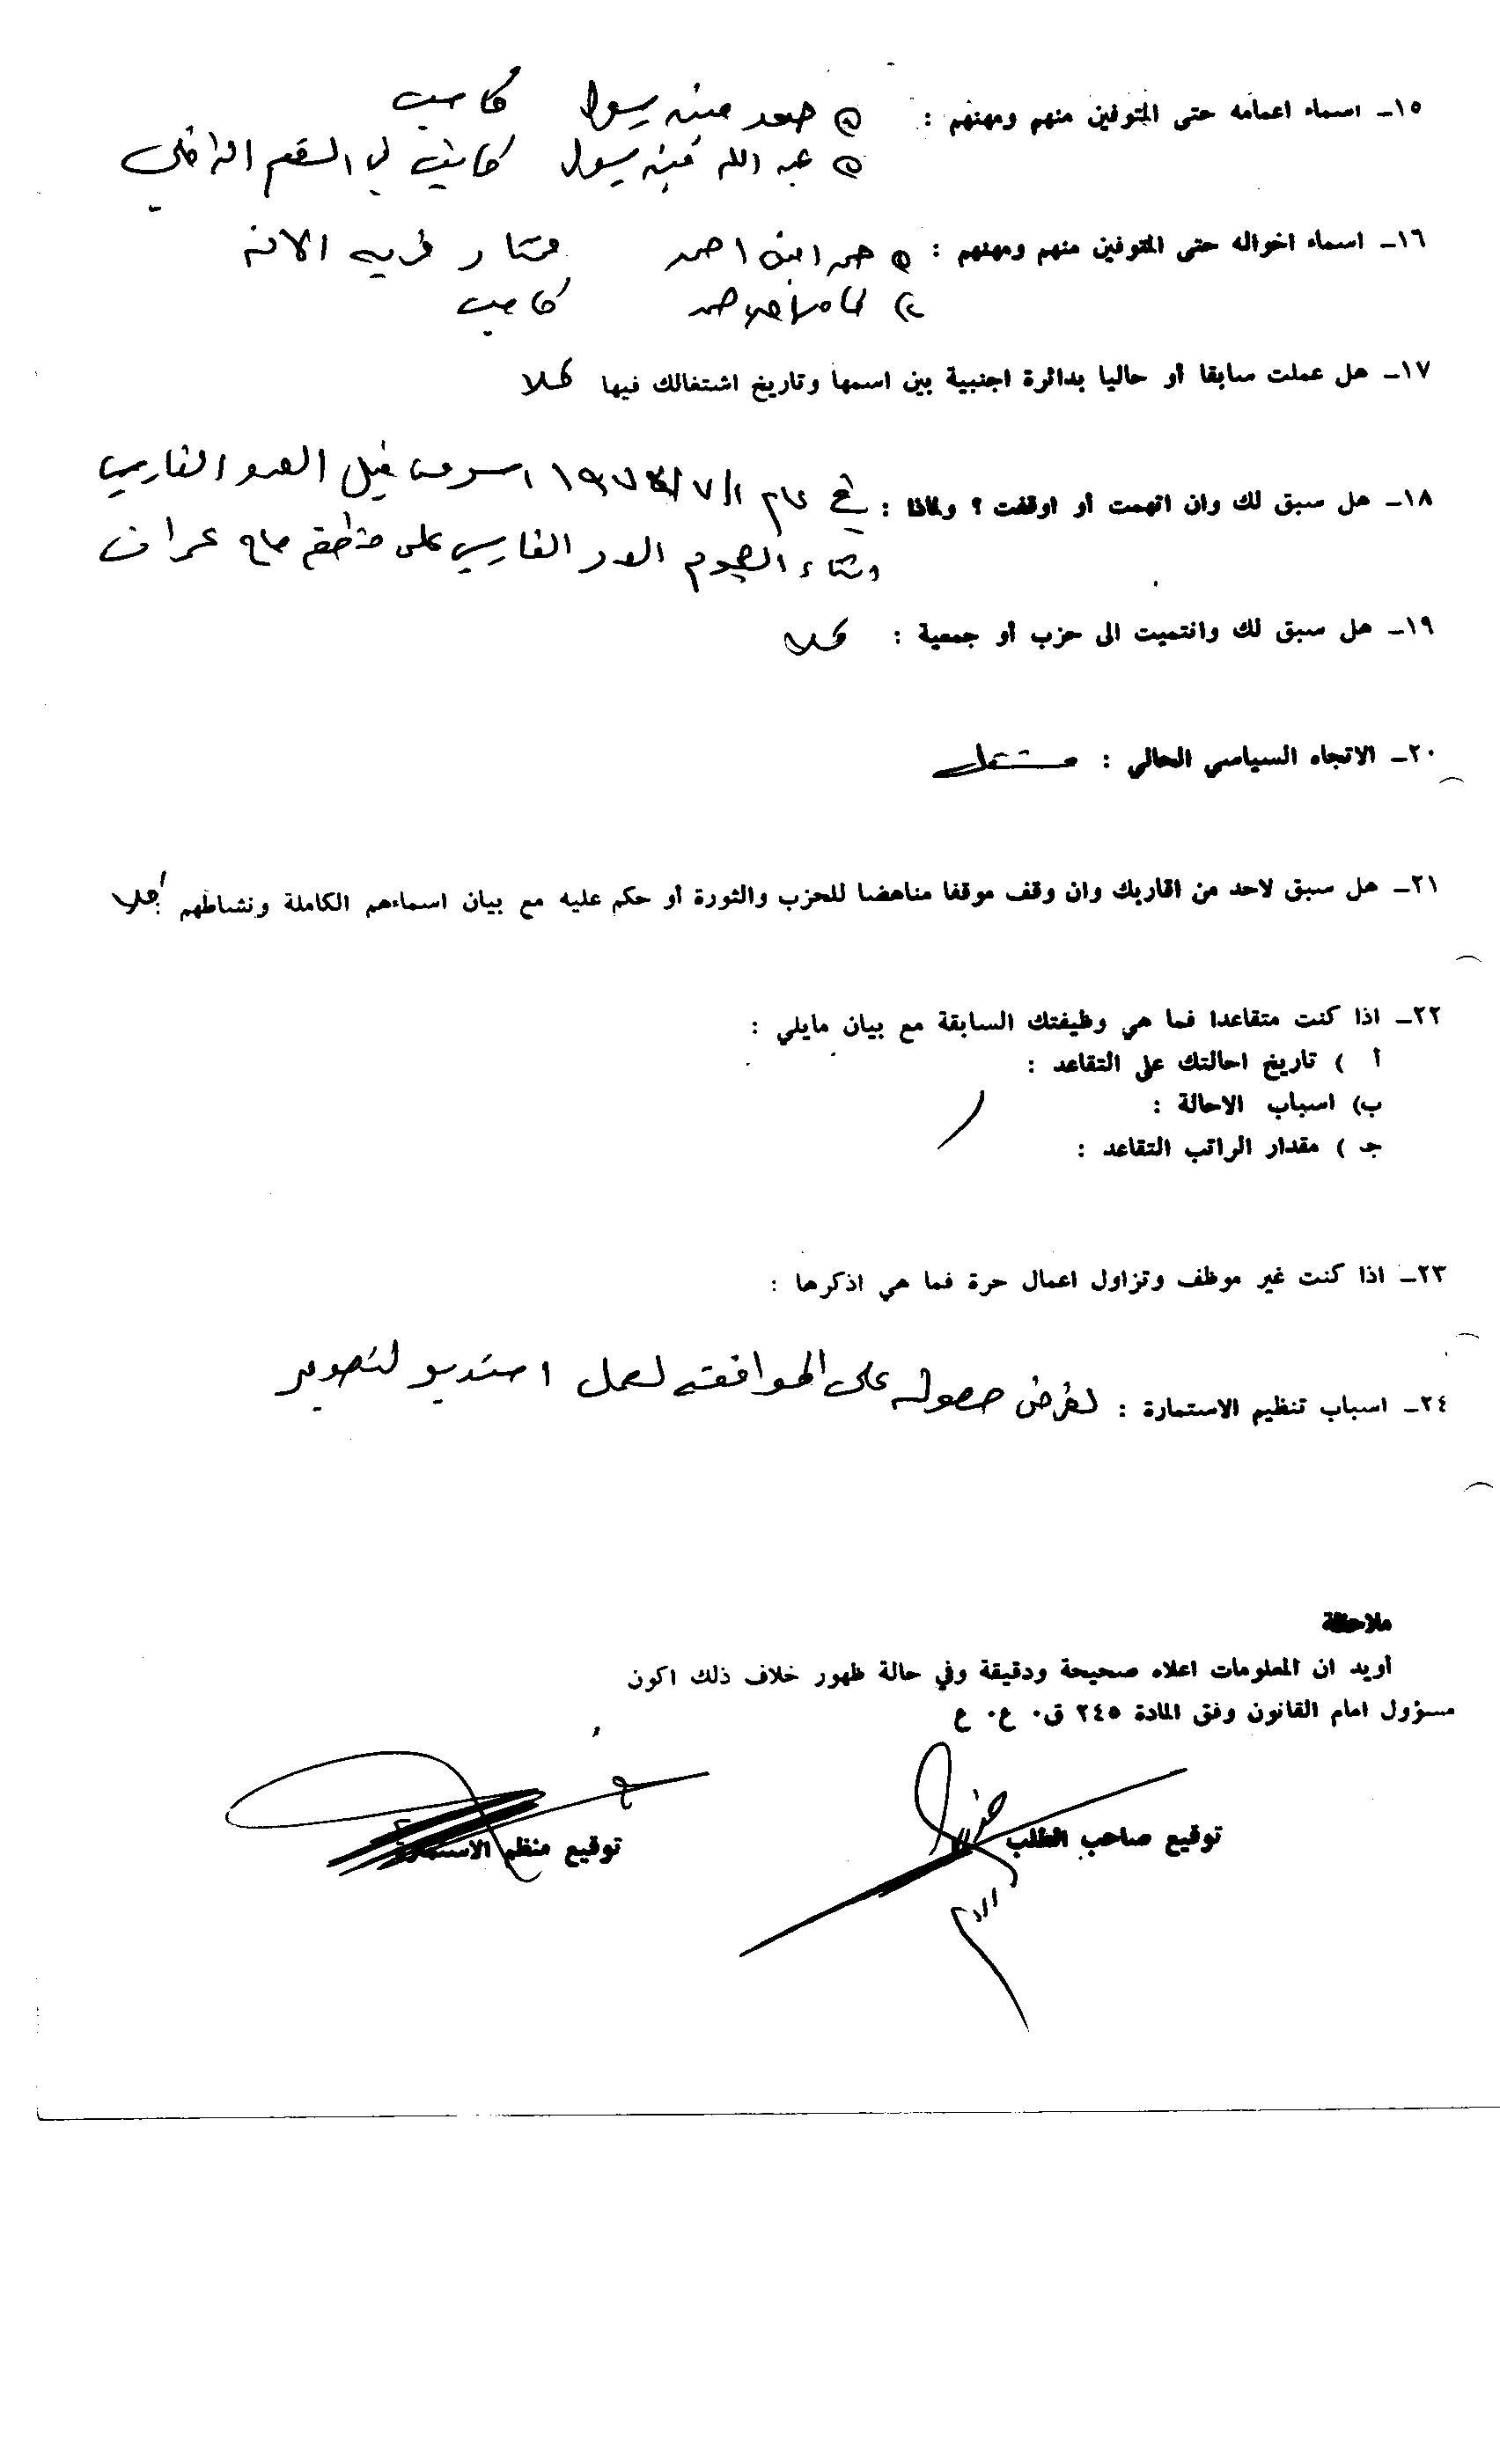 ١٥ــ اسماء اعمامه حتى المتوفين منهم ومهنهم : ① حمد مينه رسول كاسب
② عبد الله مينه رسول كاتب في
١٦ــ اسماء اخواله حتى المتوفين منهم ومهنهم : ① احمد مختار قريه
٢) كاسب
١٧ــ هل عملت سابقا أو حاليا بدائرة اجنبية بين اسمها وتاريخ اشتغالك فيها كلا
١٨ــ هل سبق لك وان اتهمت أو اوقفت ؟ ولماذا : في عام قبل العدو الفارسي
اثناء الهجوم الفارسي على منطقه حاج عمران
١٩ــ هل سبق لك وانتميت الى حزب أو جمعية : كلا
٢٠ــ الاتجاه السياسي الحالي : مستقل
٢١ــ هل سبق لاحد من اقاربك وان وقف موقفا مناهضا للحزب والثورة أو حكم عليه مع بيان اسماءهم الكاملة ونشاطهم كلا
٢٢ــ اذا كنت متقاعدا فما هي وظيفتك السابقة مع بيان مايلي :
أ ) تاريخ احالتك على التقاعد :
ب) اسباب الاحالة :
جـ ) مقدار الراتب التقاعد :
٢٣ــ اذا كنت غير موظف وتزاول اعمال حرة فما هي اذكرها :
٢٤ــ اسباب تنظيم الاستمارة : لغرض حصوله على الموافقه لعمل استديو لتصوير
ملاحظة
أويد ان المعلومات اعلاه صحيحة ودقيقة وفي حالة ظهور خلاف ذلك اكون
مسؤول امام القانون وفق المادة ٢٤٥ ق٠ ع٠ ع
توقيع صاحب الطلب
توقيع منظم الاستمارة